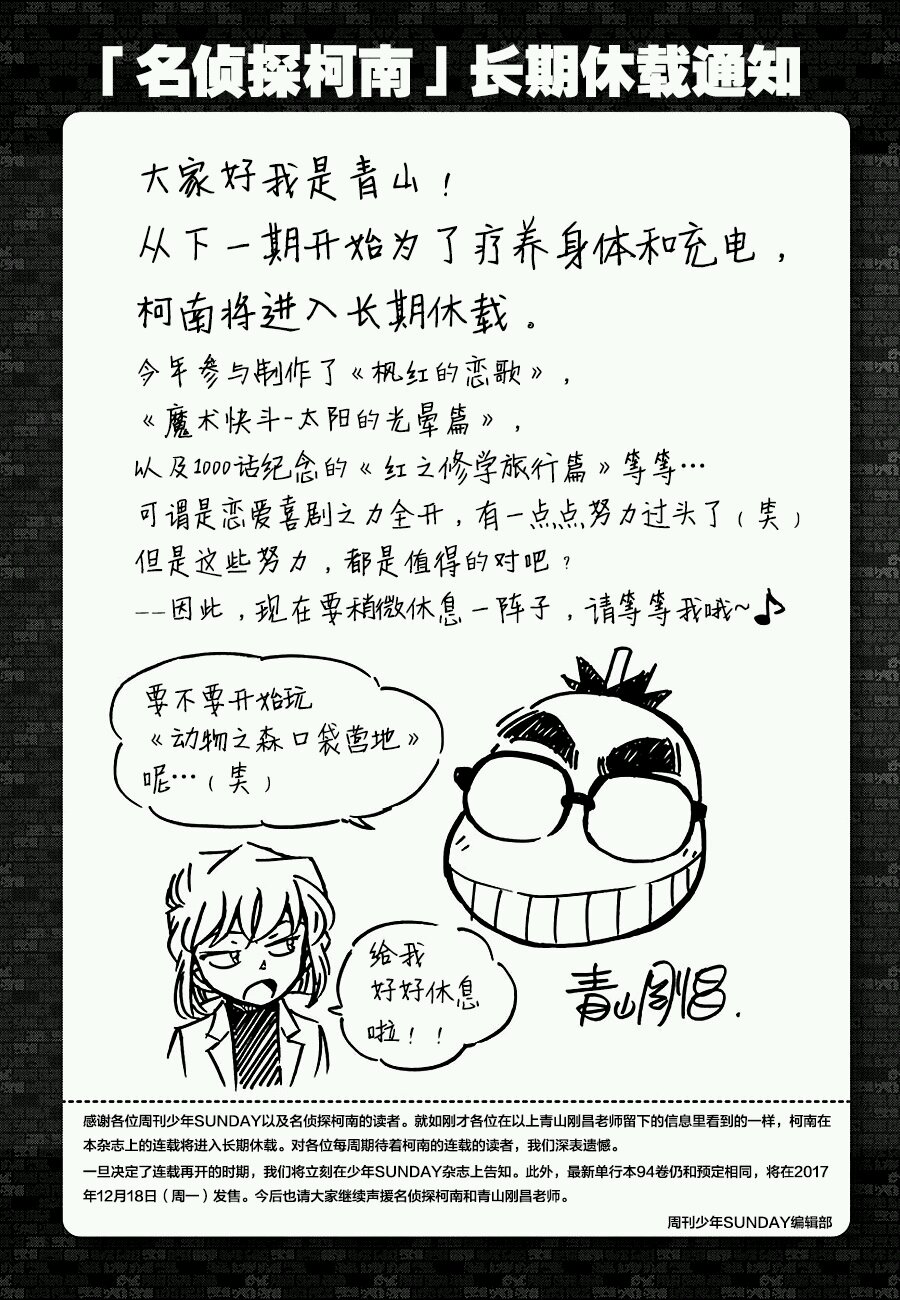 「名侦探柯南」长期休载通知
大家好我是青山！
从下一期开始为了疗养身体和充电，
柯南将进入长期休载。
今年参与制作了《枫红的恋歌》，
《魔术快斗-太阳的光晕篇》，
以及1000话纪念的《红之修学旅行篇》等等…
可谓是恋爱喜剧之力全开，有一点点努力过头了（笑）
但是这些努力，都是值得的对吧？
——因此，现在要稍微休息一阵子，请等等我哦~♪
要不要开始玩
《动物之森口袋营地》
呢…（笑）
给我
好好休息
啦！！
青山刚昌.
感谢各位周刊少年SUNDAY以及名侦探柯南的读者。就如刚才各位在以上青山刚昌老师留下的信息里看到的一样，柯南在
本杂志上的连载将进入长期休载。对各位每周期待着柯南的连载的读者，我们深表遗憾。
一旦决定了连载再开的时期，我们将立刻在少年SUNDAY杂志上告知。此外，最新单行本94卷仍和预定相同，将在2017
年12月18日（周一）发售。今后也请大家继续声援名侦探柯南和青山刚昌老师。
周刊少年SUNDAY编辑部